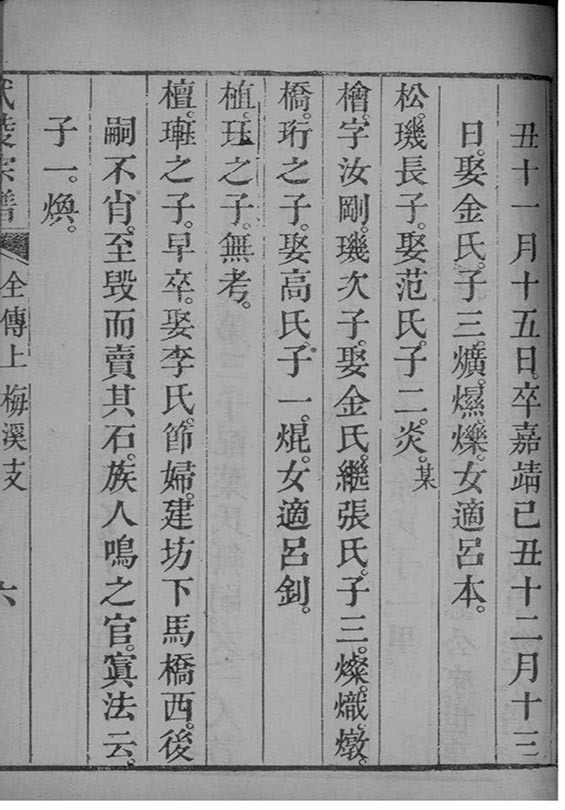 丑十一月十五日。卒嘉靖己丑十二月十三
日。娶金氏。子三。爌。爆。爍。女適呂本。
松。璣長子。娶范氏。子二。炎。某
檜。字汝剛。璣次子。娶金氏。繼張氏。子三。燦。熾。燉。
橋。珩之子。娶高氏。子一。焜。女適呂釗。
植。玨之子。無考。
檀。之子。早卒。娶李氏。節婦。建坊下馬橋西。後
嗣不肖。至毀而賣其石。族人鳴之官。寘法云。
子一。煥。
宗譜 全傳上 梅溪支 六